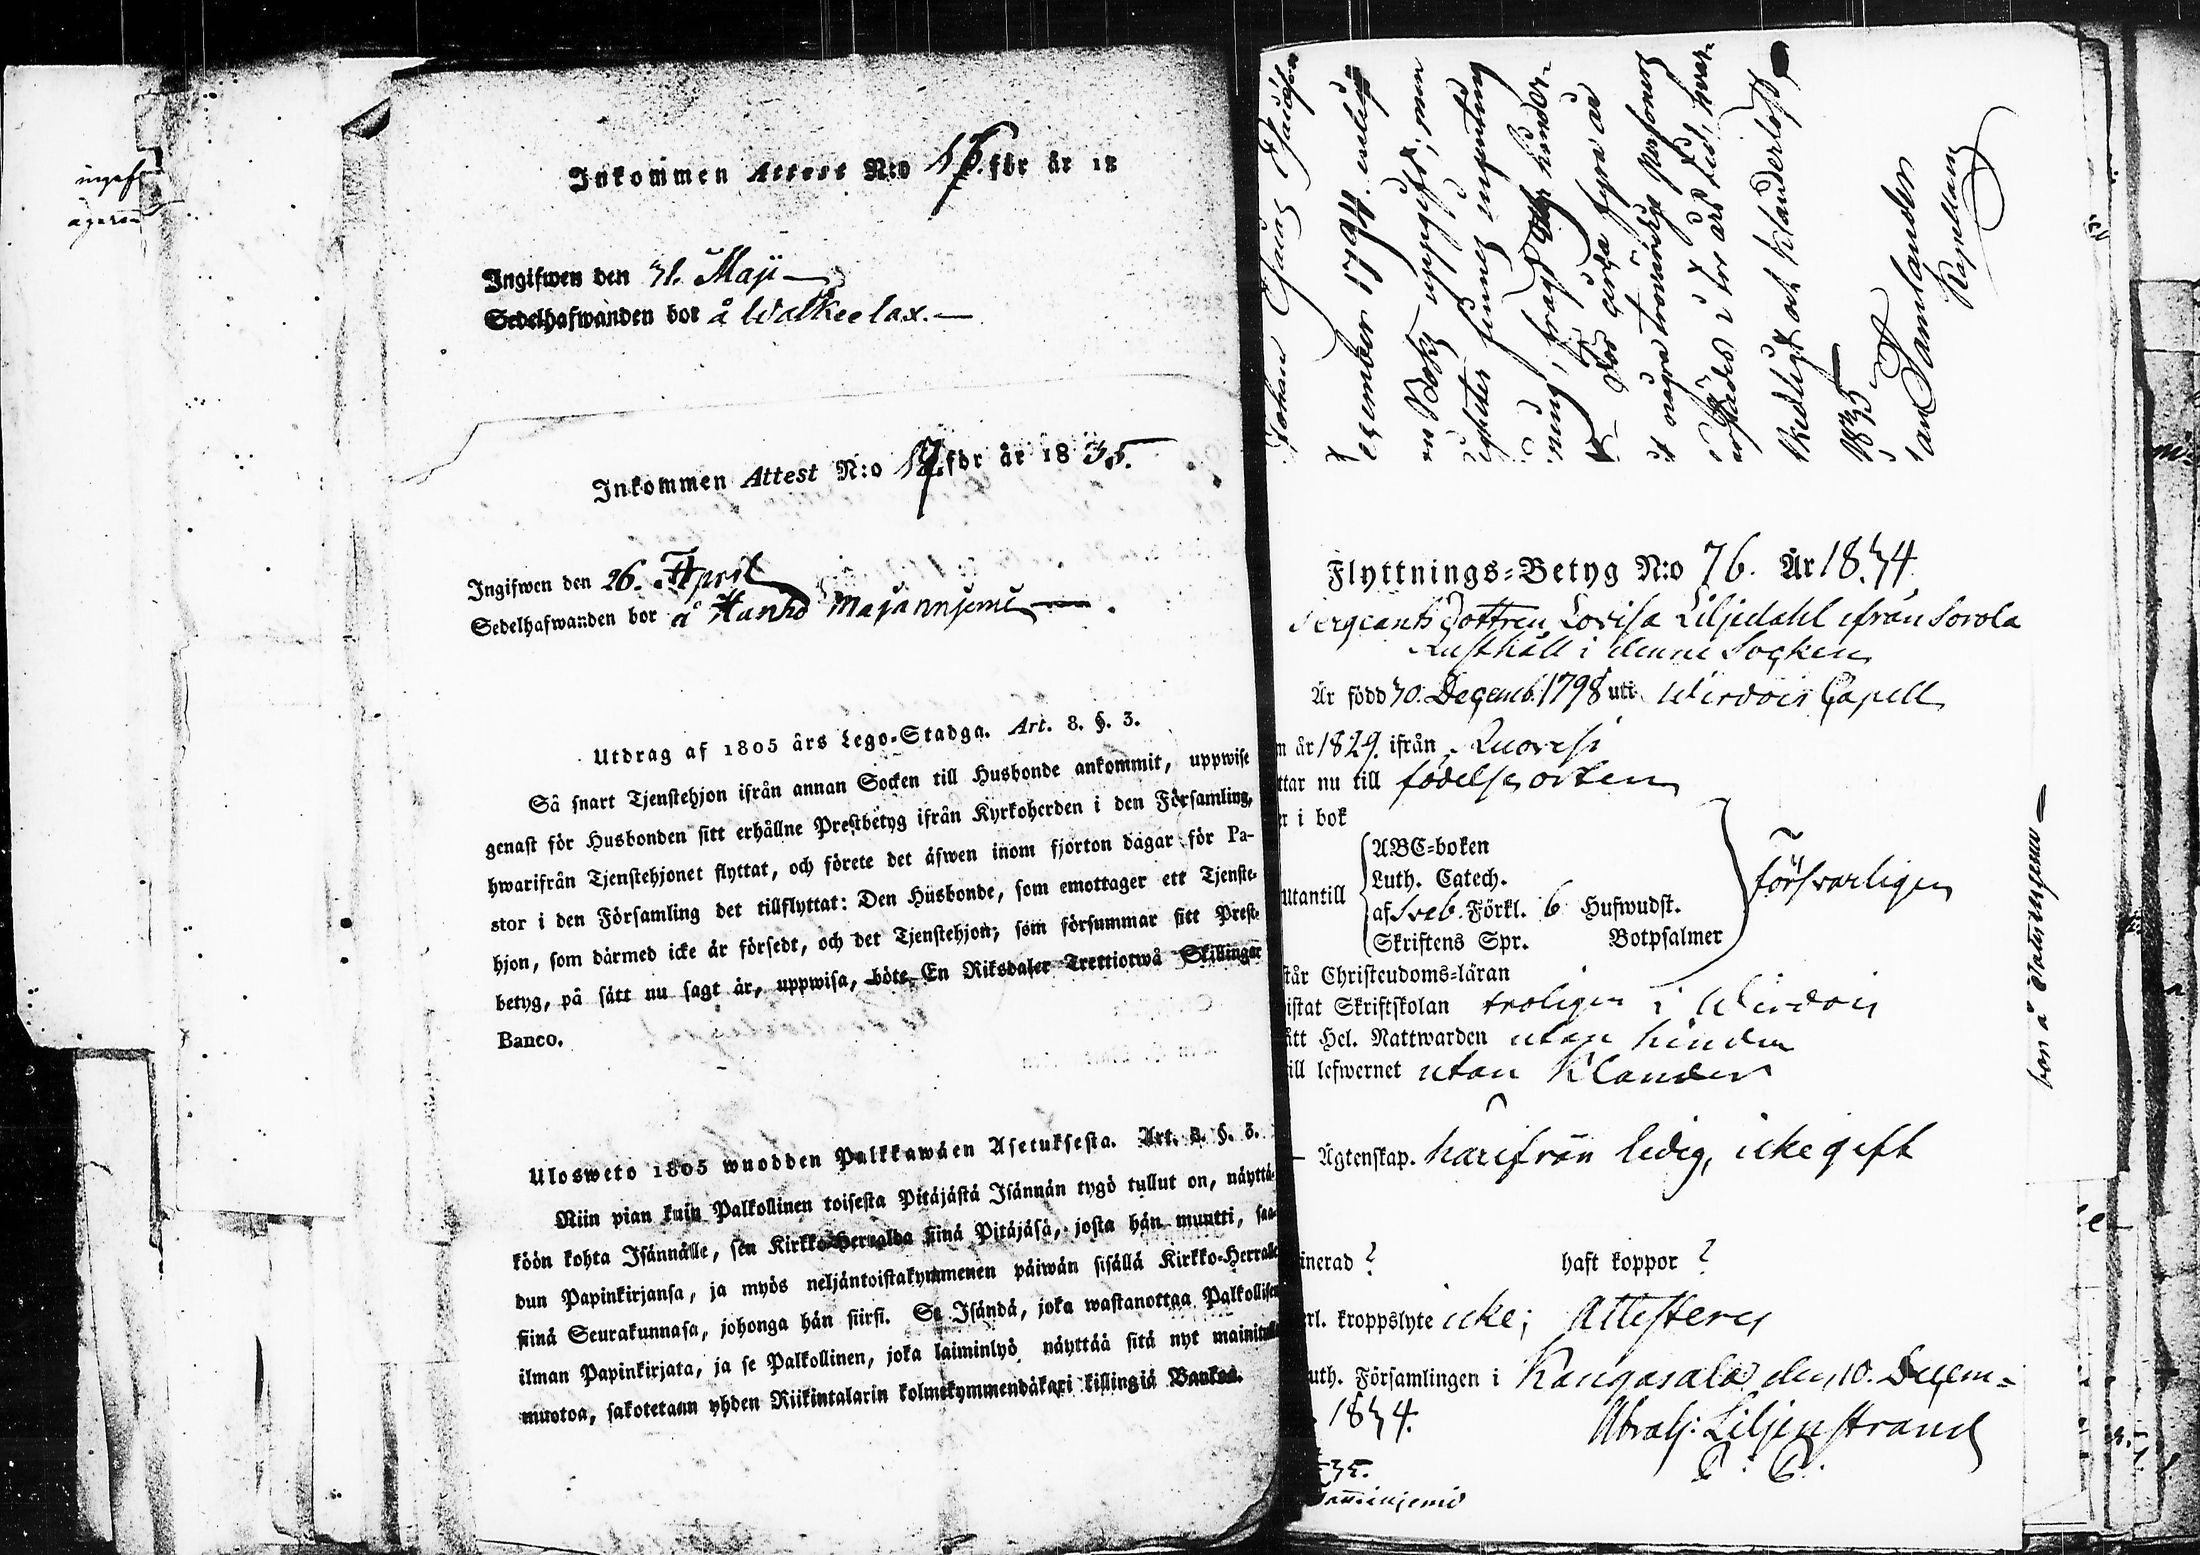 ingef
ägaren
Inkommen Attest N:o 16. för år 18
Ingifwen den 31. Maji
Sedelhafwanden bor å Walkeelax.
Inkommen Attest N:o 17. för år 1835.
Ingifwen den 26. April
Sedelhafwanden bor å Hanho Majanniemi
Utdrag af 1805 års Lego-Stadga. Art. 8. §. 3.
Så snart Tjenstehjon ifrån annan Socken till Husbonde ankommit, uppwise
genast för Husbonden sitt erhållne Prestbetyg ifrån Kyrkoherden i den Församling,
hwarifrån Tjenstehjonet flyttat, och förete det äfwen inom fjorton dagar för Pa-
stor i den Församling det tillflyttat: Den Husbonde, som emottager ett Tjenste-
hjon, som därmed icke är försedt, och det Tjenstehjon, som försummar sitt Prest-
betyg, på sätt nu sagt är, uppwisa, böte En Riksdaler Trettiotwå Skillingar
Banco.
Ulosweto 1805 wuodden Palkkawäen Asetuksesta. Art. 8. §. 3.
Niin pian kuin Palkollinen toisesta Pitäjästä Isännän tygö tullut on, näyttä-
köön kohta Isännälle, sen Kirkko-Herralda siinä Pitäjäsä, josta hän muutti, saa-
dun Papinkirjansa, ja myös neljäntoistakymmenen päiwän sisällä Kirkko-Herralle
siinä Seurakunnasa, johonga hän siirsi. Se Isändä, joka wastanottaa Palkollisen
ilman Papinkirjata, ja se Palkollinen, joka laiminlyö näyttää sitä nyt mainitulla
muotoa, sakotetaan yhden Riikintalarin kolmekymmendäkaxi killingiä Bankos.
Johan
December 1794. enligt
uppgift, men
finnes ingenting
ning,
cirka fyra år
några trovärdige Personers
års tid, hvar-
skedligt och klanderlöst
1835
Samslander
Kapellan
Flyttnings-Betyg N:o 76. År 1834
Sergeants Dottren Lovisa Liljedahl ifrån Sorola
Rusthåll i denne Socken
Är född 30. Decemb. 1798 uti Wirdois Capell
n år 1829. ifrån Ruovesi
ttar nu till födelse orten
r i bok
Utantill
ABC-boken
Luth. Catech.
af Sveb. Förkl. 6 Hufwudst.
Skriftens Spr. Botpsalmer
försvarligen
står Christendoms-läran
istat Skriftskolan troligen i Wirdois
ått Hel. Nattwarden utan hinder
ill lefwernet utan klander
Ägtenskap. härifrån ledig, icke gift
inerad ? haft koppor ?
rl. kroppslyte icke; Attesteres
uth. Församlingen i Kangasala den 10. Decem=
1834.
Abrah: Liljenstrand
35.
bor å